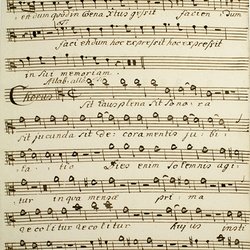 endum quod in Cena Xtus gessit facien dum
faciendum hoc expressit hoc expressit
in sui memoriam.
Allab:
Chorus
sit laus plena sit sonora
sit jucunda sit decora mentis jubi
latio Dies enim solemnis agi
tur in qua mensæ prima
recolitur recolitur hujus insti